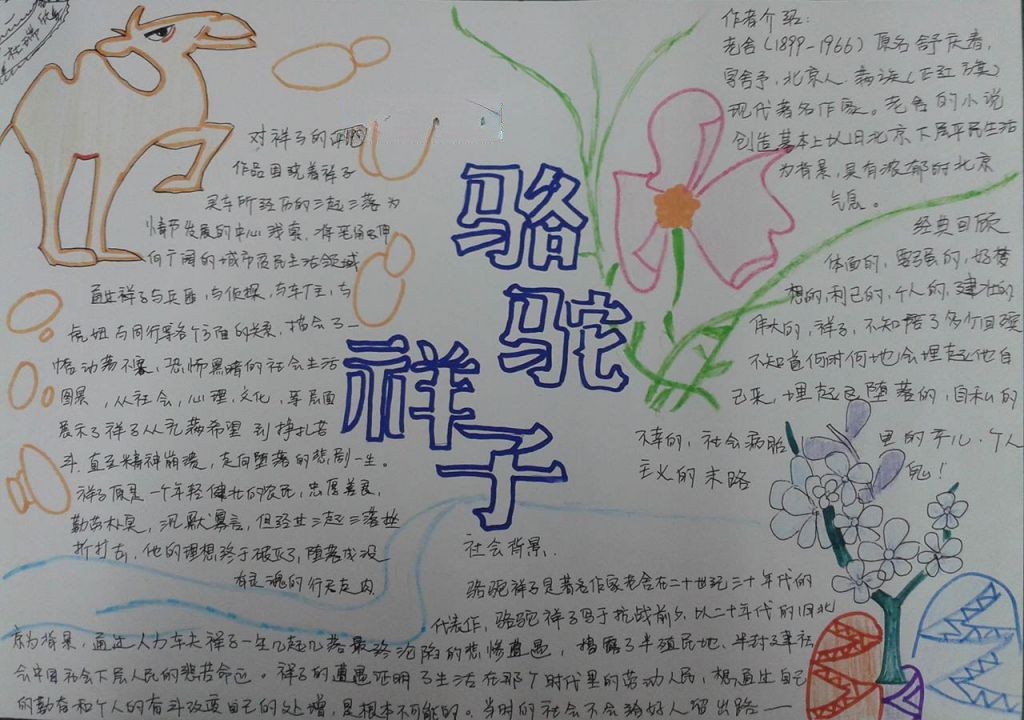 骆驼
祥子
作者介绍:
老舍(1899-1966)原名舒庆春,
字舍予,北京人,满族(正红旗)
现代著名作家。老舍的小说
创造基本上以旧北京下层平民生活
为背景,具有浓郁的北京
气息。
经典回顾
体面的,要强的,好梦
想的,利己的,个人的,健壮的
伟大的,祥子,不知陪了多少回殡
不知道何时何地会埋起他自
己来,埋起这堕落的,自私的
不幸的,社会病胎里的产儿,个人
主义的末路鬼!
对祥子的评论
作品围绕着祥子
买车所经历的三起三落为
情节发展的中心线索,
向广阔的城市贫民生活领域
通过祥子与兵匪,与侦探,与车厂主,与
虎妞与同行等各个方面的关系,描绘了一
幅动荡不安,恐怖黑暗的社会生活
图景,从社会,心理,文化,等层面
展示了祥子从充满希望到挣扎苦
斗,直至精神崩溃,走向堕落的悲剧一生。
祥子原是一个年轻健壮的农民,忠厚善良,
勤劳朴实,沉默寡言,但经过三起三落挫
折打击,他的理想终于破灭了,堕落成没
有灵魂的行尸走肉
社会背景:
骆驼祥子是著名作家老舍在二十世纪三十年代的
代表作,骆驼祥子写于抗战前夕,以二十年代的旧北
京为背景,通过人力车夫祥子一生几起几落最终沦陷的悲惨遭遇,揭露了半殖民地、半封建社
会中国社会下层人民的悲苦命运。祥子的遭遇证明了生活在那个时代里的劳动人民,想通过自己
的勤奋和个人的奋斗改变自己的处境,是根本不可能的。当时的社会不会给好人留出路——